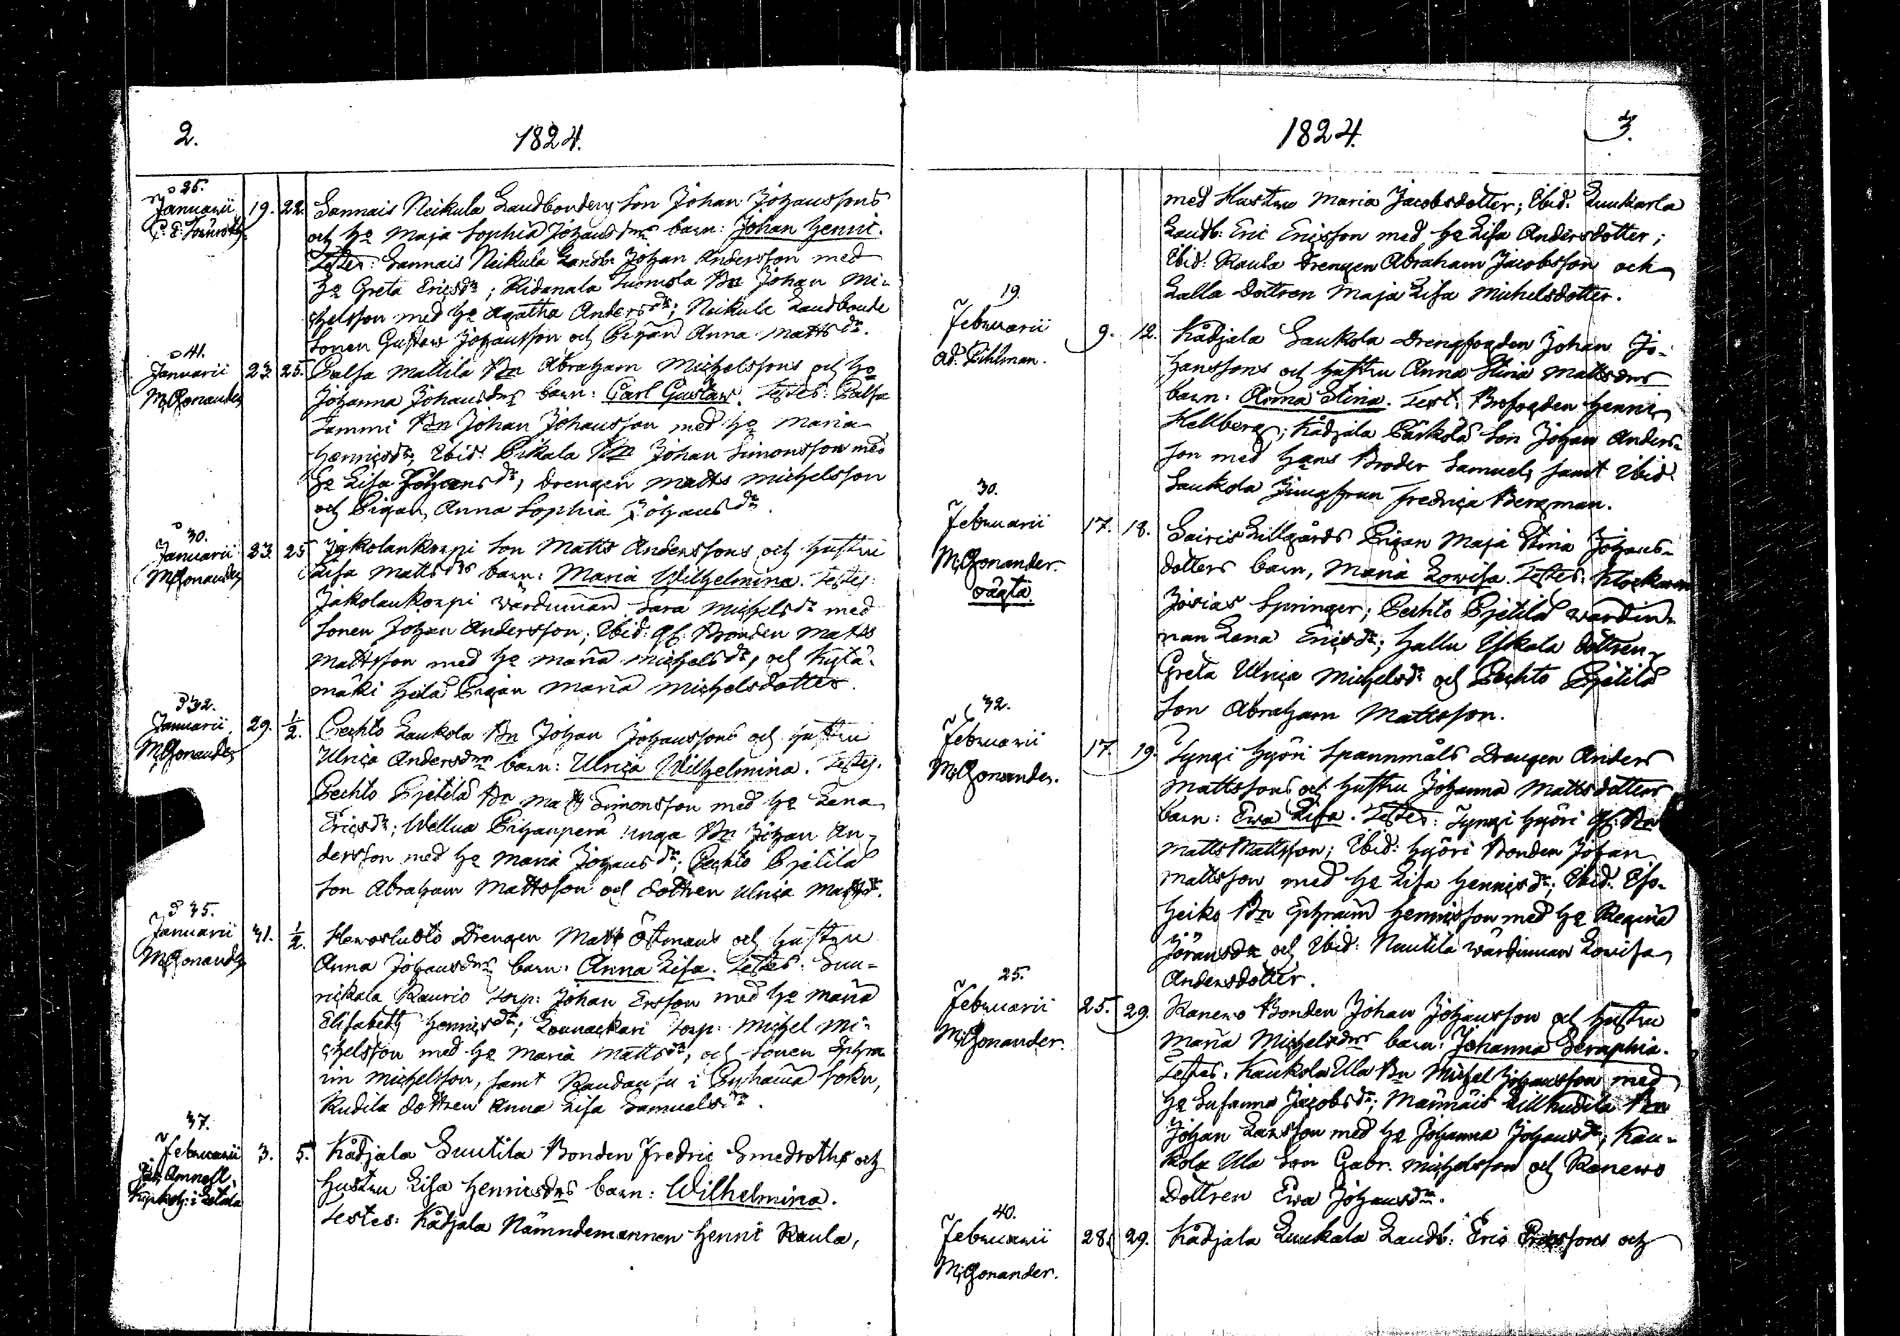 2.
1824.
25.
Januarii 19. 22. Sannais Neikula Landbondens Son Johan Johanssons
och H:o Maja Sophia Johansdrs barn: Johan Henric.
Testes: Sannais Neikula Landb: Johan Andersson med
H:o Greta Ericsdr; Ridanala Tuomola Bn Johan Mi-
chelsson med H:o Agatha Andersdr; Neikula Landbonde
Sonen Gustaw Johansson och Pigan Anna Mattsdr.
41.
Januarii 23. 25. Palsa Mattila Bn Abraham Michelssons och H:o
M: Gonander Johanna Johansdrs barn: Carl Gustaw. Testes: Palsa
Tammi Bn Johan Johansson med H:o Maria
Henricsdr; Ibid: Pikala Bn Johan Simonsson med
H:o Lisa Johansdr, Drengen Matts Michelsson
och Pigan Anna Sophia Johansdr.
30.
Januarii 23. 25 Jakolankorpi Son Matts Anderssons och Hustru
M: Gonander Lisa Mattsdrs barn: Maria Wilhelmina. Testes:
Jakolankorpi Wärdinnan Sara Michelsdr med
Sonen Johan Andersson; Ibid: Gl: Bonden Matts
Mattsson med H:o Maria Michelsdr, och Kytä-
mäki Heila Pigan Maria Michelsdotter.
32.
Januarii 29. 1/2. Pechto Laukola Bn Johan Johanssons och Hustru
M: Gonander Ulrica Andersdrs barn: Ulrica Wilhelmina. Testes:
Pechto Pjetilä Bn Matts Simonsson med H:o Lena
Ericsdr; Wellua Pihanperä unga Bn Johan An-
dersson med H:o Maria Johansdr; Pechto Pjetilä
Son Abraham Mattsson och Dottren Ulrica Mattsdr.
35.
Januarii 31. 1/2. Drengen Matts Östmans och Hustru
M: Gonander Anna Johansdrs barn: Anna Lisa. Testes: Suu-
niskala Raurio Torp: Johan Ersson med H:o Maria
Elisabeth Henricsdr; Torp: Michel Mi-
chelsson med H:o Maria Mattsdr, och Sonen Ephra-
im Michelsson, samt i Pyhama Sokn,
Rudila Dottren Anna Lisa Samuelsdr.
37.
Februarii 3. 5. Kådjala Suutila Bonden Fredric Smedroths och
Hustru Lisa Henricsdrs barn: Wilhelmina.
Testes: Kådjala Nämndemannen Henric Raula,
1824.
3.
med Hustru Maria Jacobsdotter; Ibid: Luukarla
Landb: Eric Ericsson med H:o Lisa Andersdotter;
Ibid: Raula Drengen Abraham Jacobsson och
Lalla Dottren Maja Lisa Michelsdotter.
19.
Februarii 9. 12. Kådjala Saukola Drengfogden Johan Jo-
Ad. Pihlman. hanssons och Hustru Anna Stina Mattsdrs
barn: Anna Stina. Test: Brofogden Henric
Hellberg; Kådjala Päskola Son Johan Anders-
son med Hans Broder Samuel, samt Ibid:
Saukola Jungfrun Fredrica Bergman.
30.
Februarii 17. 18. Sairis Lillgårds Pigan Maja Stina Johans-
M: Gonander. dotters barn, Maria Lowisa. Testes: Klockaren
oägta. Josias Springer; Pechto Pjetilä Wärdin-
nan Lena Ericsdr; Hallu Eskola Dottren
Greta Ulrica Michelsdr och Pechto Pjetilä
Son Abraham Mattsson.
32.
Februarii 17. 19. Tyngi Hyöri Spannmåls Drengen Anders
M: Gonander. Mattssons och Hustru Johanna Mattsdotters
barn: Ewa Lisa. Testes: Tyngi Hyöri Gl: Bn
Matts Mattsson; Ibid: Hyöri Bonden Johan
Mattsson med H:o Lisa Henricsdr; Ibid: Eso-
heiko Bn Ephraim Henricsson med H:o Regina
Göransdr och Ibid: Nautila Wärdinnan Lowisa
Andersdotter.
25.
Februarii 25. 29. Ranewo Bonden Johan Johansson och Hustru
M: Gonander. Maria Michelsdrs barn: Johanna Seraphia.
Testes: Kaukola Ula Bn Michel Johansson med
H:o Susanna Jacobsdr; Männäis Lillhudila Bn
Johan Larsson med H:o Johanna Johansdr, Kau-
kola Ula Son Gabr. Michelsson och Ranewo
Dottren Ewa Johansdr.
40.
Februarii 28. 29. Kådjala Luukala Landb: Eric Ericssons och
M: Gonander.